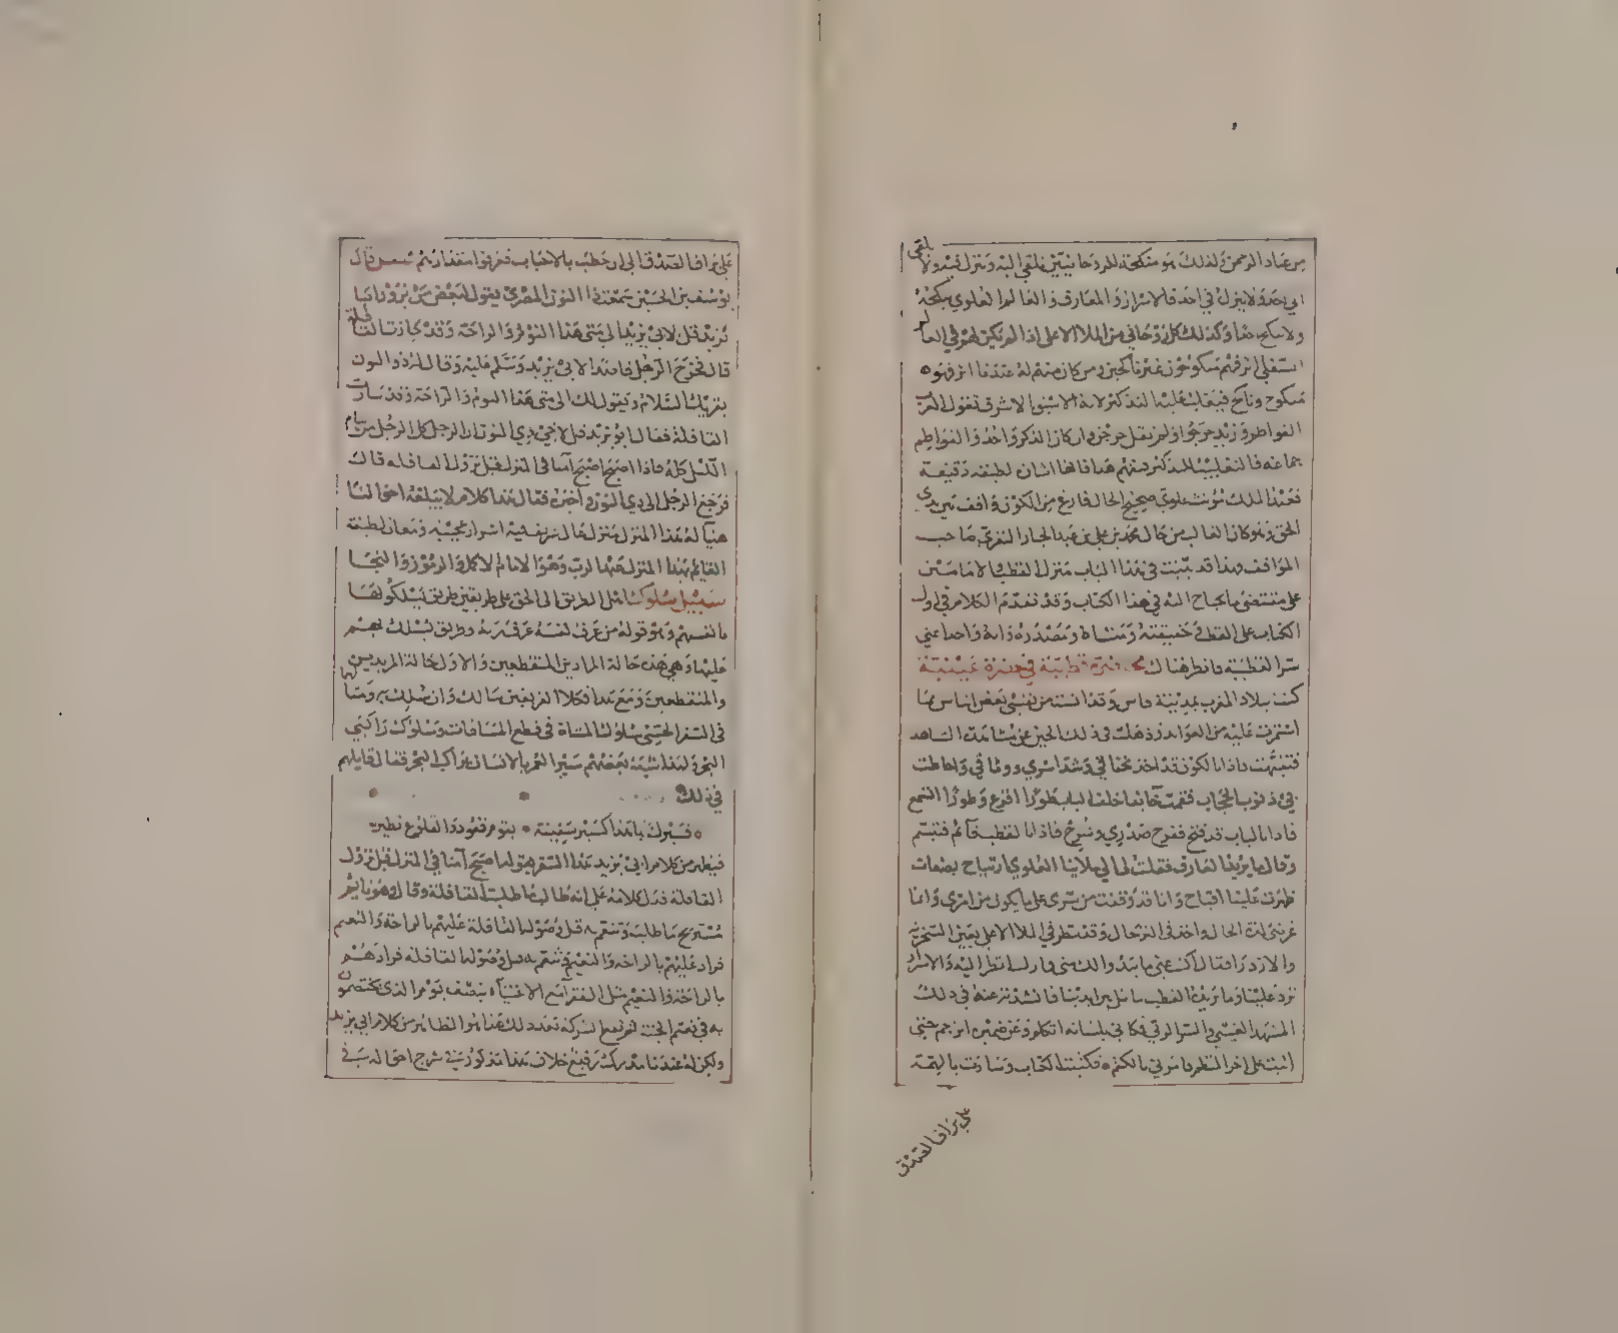 من عباد الرحمن ولذلك هو منكحة للروحانيين فيلقي اليه وينزل فيه ولا يلقي
الى احد ولا ينزل في احد فالاسرار والمعارف والعالم العلوي ينكحه
ولا ينكح وكذلك كل روحاني من الملا الاعلى اذا لم يكن لهم في العالم
السفلي اثر فهم منكوحون غير ناكحين ومن كان منهم له عندنا اثر فهو
منكوح وناكح فيغلب عليه التذكير لانه الاسبق الاشرف تقول العرب
الفواطم وزيد خرجوا ولم يقل خرجن وان كان الذكر واحد والفواطم
جماعة فالتغليب للمذكر فتفهم هذا فانها اشارة لطيفة دقيقة
فعند الملك علوي صحيح الحال فارغ من الكون واقف بين يدي
الحق وهو كان الغالب من حال محمد بن علي بن عبد الجبار النفري صاحب
المواقف وهذا قد بينت في هذا الباب منزل القطب والامامين
على مقتضى ما يحتاج اليه في هذا الكتاب وقد تقدم الكلام في اول
الكتاب على القطب في حقيقته ومصدره ذاته واحدا عني
سر القطبية فانظر هناك قطبية في حضرة غيبية
كنت ببلاد المغرب بمدينة فاس وقد انست من نفسي بعض ايناس مما
استمرت عليه من العوايد وذهلت في ذلك الحين عن مشاهدة الشاهد
فتنبهت فاذا بالكون قد اخذ بمخنقي وشد اسري ووثاقي واحاطت
بي ذنوب الحجاب فقمت خائفا خلف الباب طورا اقرع وطورا اتسمع
فاذا بالباب قد فتح ففرح صدري وشرح فاذا بالقطب قائم فتبسم
وقال ما يريد العارف فقلت له لي بملائنا العلوي ارتياح بصفات
ظهرت علينا اقباح وانا قد وقفت من سري على ما يكون من امري وانما
غرضي لذة الحال واخذ في الترحال وقد نظر في الملا الاعلى بعين السخرية
والازدرا فقال كن عني ما يبدو لك مني فارسلت نظرا اليه والاسرار
ترد علينا وما يريد القطب ماثل بين ايدينا فانشدته عنه في ذلك
المشهد الغيبي والسر الرقي فكاني بلسانه اتكلم وعن ضميره اترجم حتى
اتيت على اخر النظم فامرني بالكتم فكتبت الكتاب وسارت بالهمة
على براق الصدق
على براق الصدق الى ان حطت بالاحباب فعرفوا مقدار قال
يوسف بن الحسين سمعت ذا النون المصري يقول لبعض من يزور ابا
يزيد قل لابي يزيد الى متى هذا النوم والراحة وقد جازت القافلة
قال فخرج الرجل قاصدا لابي يزيد وسلم عليه وقال له ذو النون
يقريك السلام ويقول لك الى متى هذا النوم والراحة وقد سارت
القافلة فقال ابو يزيد قل لاخي ذي النون ان الرجل كل الرجل من ينام
الليل كله فاذا اصبح اصبح آمنا في المنزل قبل نزول القافلة قال
فرجع الرجل الى ذي النون واخبره فقال هذا كلام لا تبلغه احوالنا
هنيا له هذا المنزل منزل عال شريف فيه اسرار عجيبة ومعان لطيفة
القايم بهذا المنزل عبد الرب وهو الامام الاكمل والرموز والنجا
سبيل سلوك مثل الطريق الى الحق على طريقين طريق يسلكونها
بانفسهم وهو قوله من عرف نفسه عرف ربه وطريق يسلك بهم
عليها وهي هذه حالة المرادين المنقطعين والاول حالة المريدين
والمنقطعين ومع هذا فكلا الفريقين سالك وان سلك به وشبهها
في السفر الحسي سلوك المشاة في قطع المسافات وسلوك راكبي
البحر ولهذا شبه بعضهم سير العمر بالانسان براكب البحر فقال قايلهم
في ذلك
فسيرك يا هذا كسير سفينة بقوم قعود والقلوع تطير
فيظهر من كلام ابي يزيد هذا السفر بقوله اصبح آمنا في المنزل قبل نزول
القافلة فدل كلامه على انه طالب ما طلبت القافلة وقال وهو نايم
مستريح ما طلبت وتنعم به قبل وصول القافلة عليهم بالراحة والنعيم
فزاد عليهم بالراحة والنعيم فتنعم به قبل وصول القافلة فزادهم
بالراحة والنعيم مثل الفقراء مع الاغنيا بنصف يوم الذي يختصمون
به في نعيم الجنة ثم تقع الشركة بعد ذلك هذا هو الظاهر من كلام ابي يزيد
ولكن له عندنا مدرك رفيع خلاف هذا مذكور في شرح احواله في